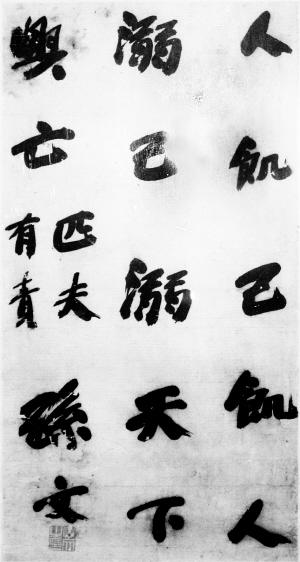 人飢己飢人
溺己溺天下
興亡匹夫
有責
孫文